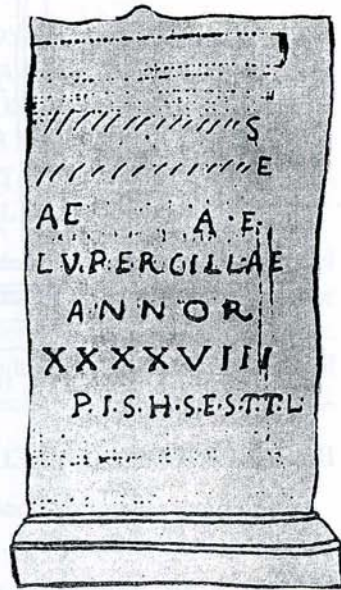 S
E
AE A·E
LV.PERCILLAE
ANNOR
XXXXVIII
P.I.S.H.S.E.S.T.T.L